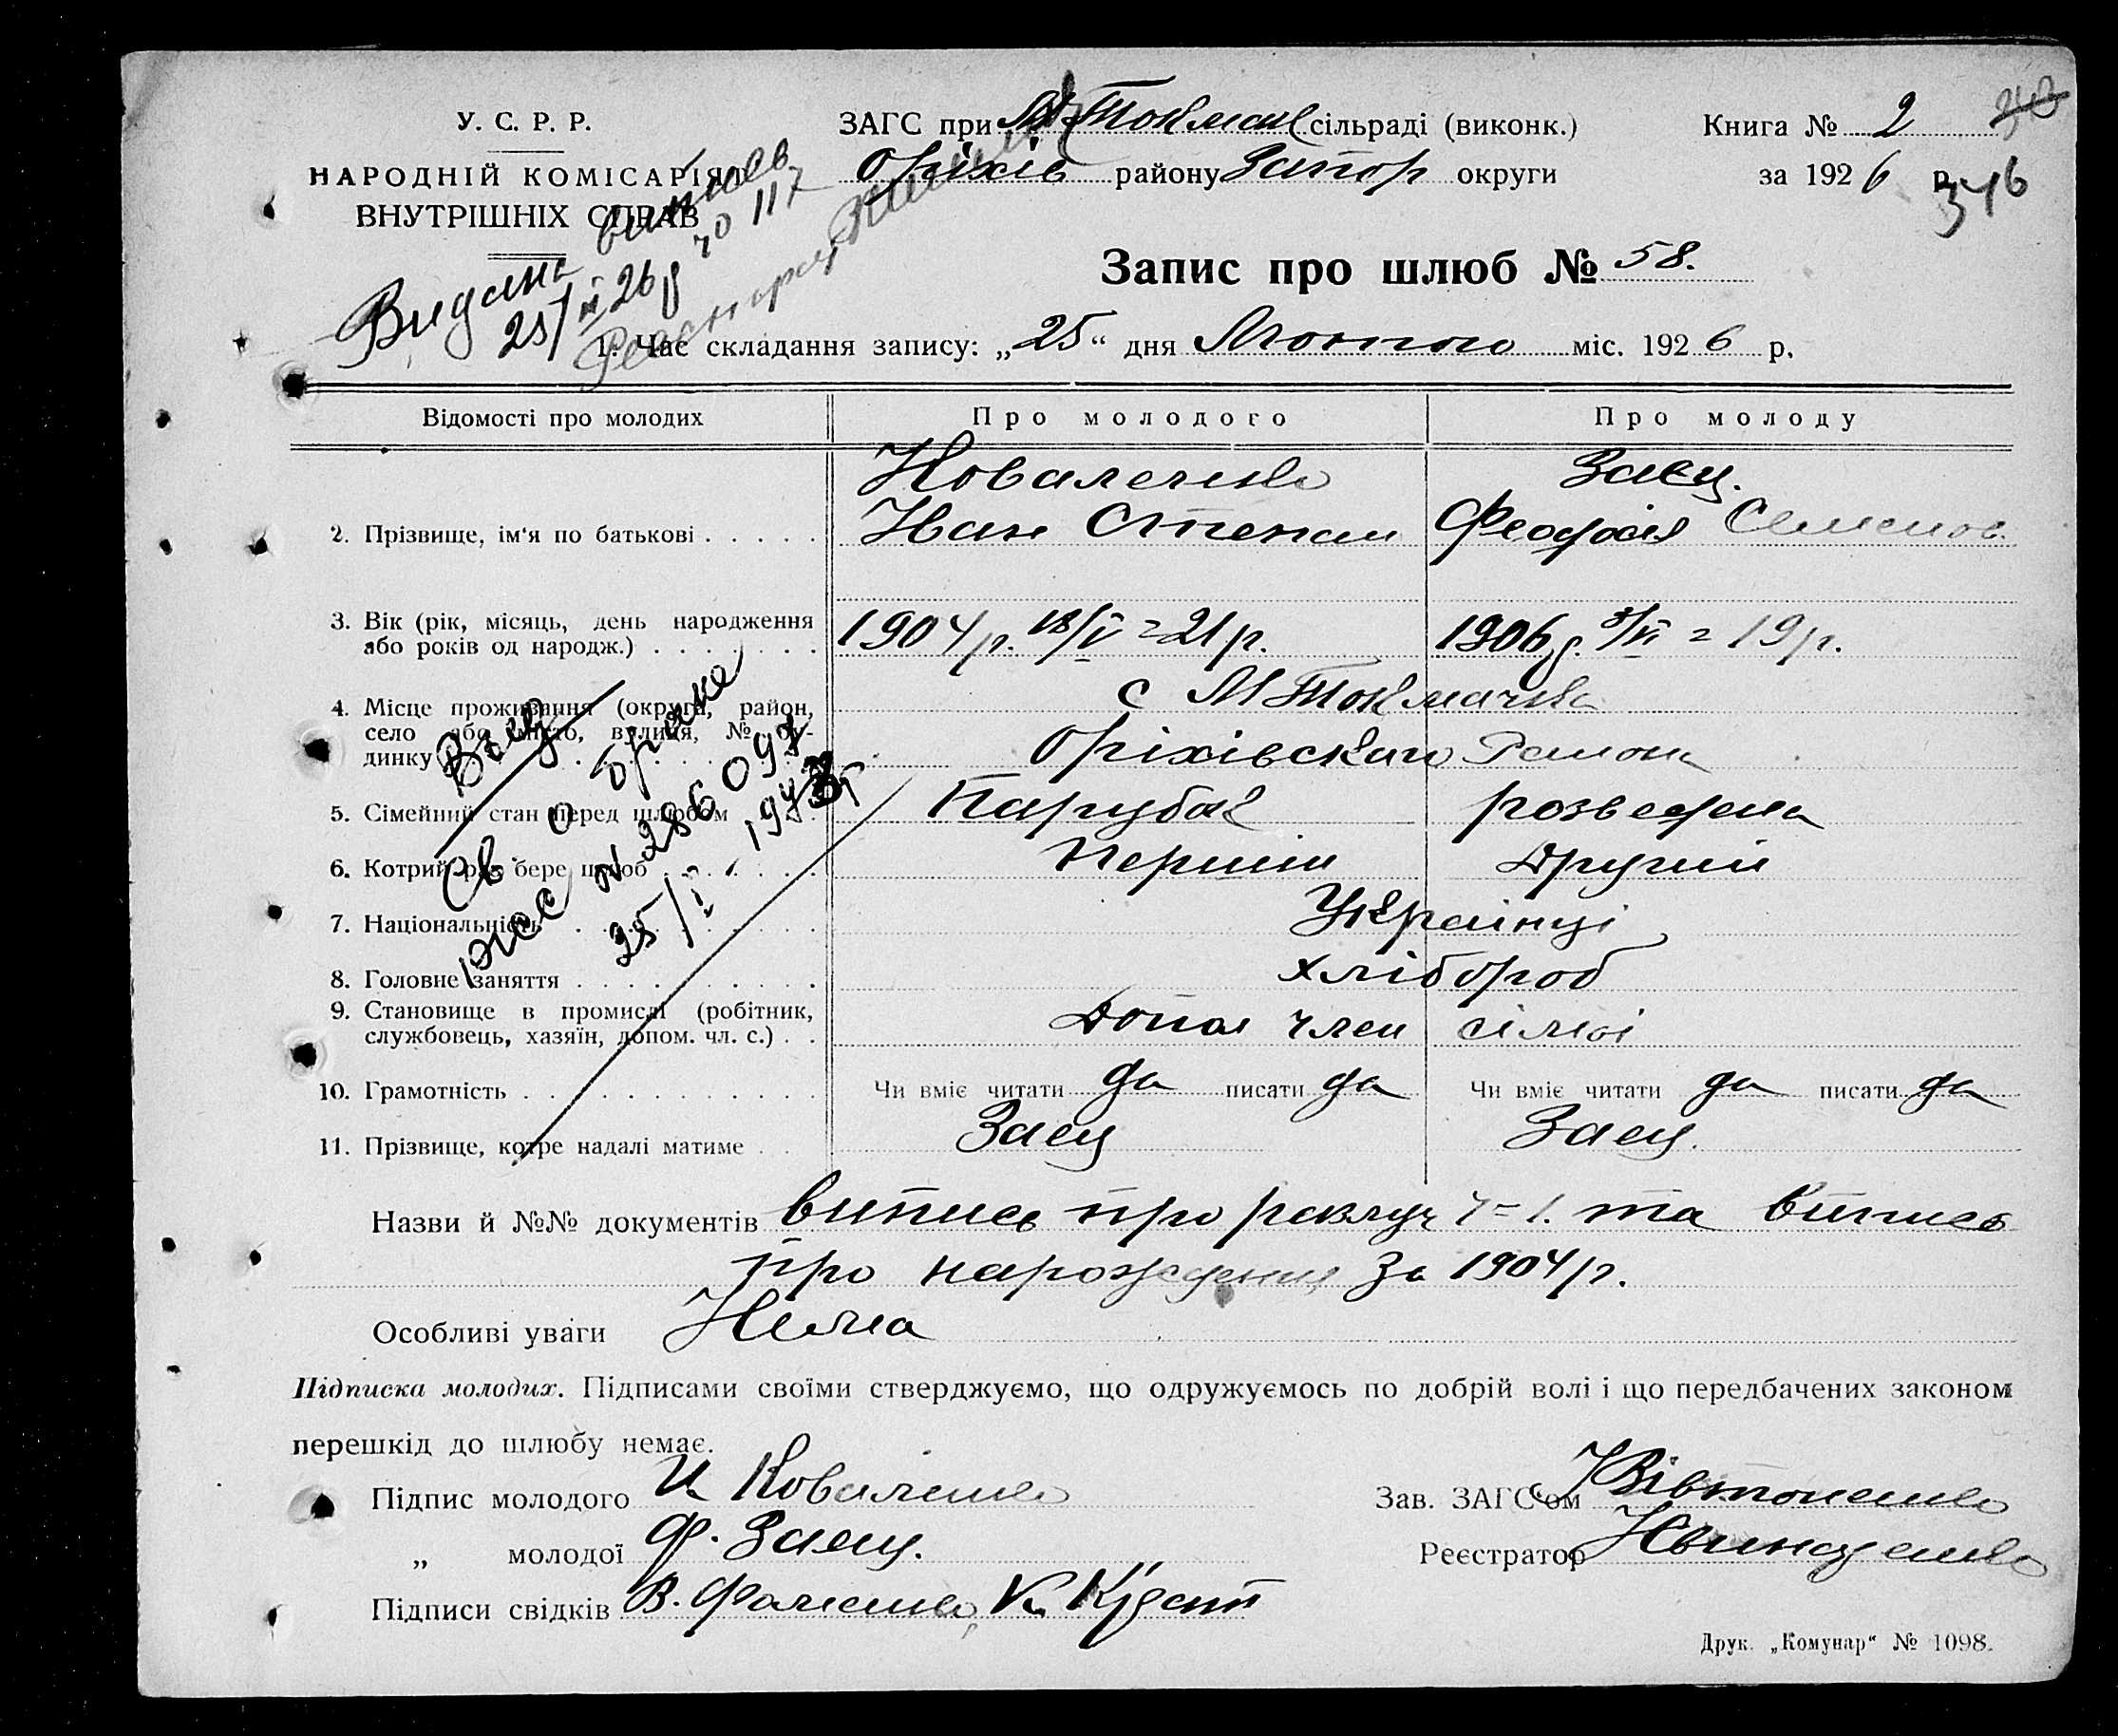 У. С. Р. Р.
НАРОДНІЙ КОМІСАРІЯТ
ВНУТРІШНІХ СПРАВ
ЗАГС при М Токмач сільраді (виконк.)
Оріхів району Запор округи
Книга № 2
за 1926 р.
346
Видана випись
25/II 26 р чо 117
Запис про шлюб № 58.
1. Час складання запису: „25“ дня Лютого міс. 1926 р.
Відомості про молодих Про молодого Про молоду
Коваленко Заец.
2. Прізвище, ім'я по батькові Іван Степан Феодосія Семенов.
3. Вік (рік, місяць, день народження
або років од народж.) 1904 р. 18/V = 21 р. 1906 р. 3/VI = 19 р.
4. Місце проживання (округа, район, с М Токмачка
село або місто, вулиця, № бу-
динку Оріхівського Района
5. Сімейний стан перед шлюбом Парубок розведена
6. Котрий раз бере шлюб Перший Другий
7. Національність Українці
8. Головне заняття хлібороб
9. Становище в промислі (робітник,
службовець, хазяїн, допом. чл. с.) Допом член сімї
10. Грамотність Чи вміє читати да писати да Чи вміє читати да писати да
11. Прізвище, котре надалі матиме Заец Заец.
Св о браке
N 286097
25/I
Назви й №№ документів випись про розлуч ч=1. та випись
про нарождення за 1904 р.
Особливі уваги Нема
Підписка молодих. Підписами своїми стверджуємо, що одружуємось по добрій волі і що передбачених законом
перешкід до шлюбу немає.
Підпис молодого И Коваленко
Зав. ЗАГС'ом
„ молодої Ф. Заец.
Реєстратор
Підписи свідків В.
Друк. „Комунар“ № 1098.